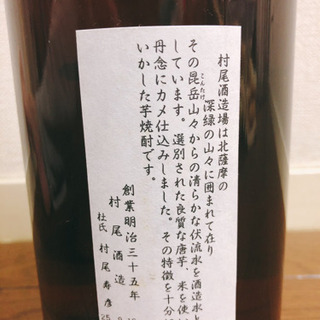 村尾酒造場は北薩摩の
深緑の山々に囲まれて在り
その昆岳山々からの清らかな伏流水を酒造水と
こんたけ
しています。選別された良質な唐芋、米を使い
丹念にカメ仕込みしました。その特徴を十分
いかした芋焼酎です。
創業明治三十五年
村尾酒造
杜氏 村尾寿彦
25